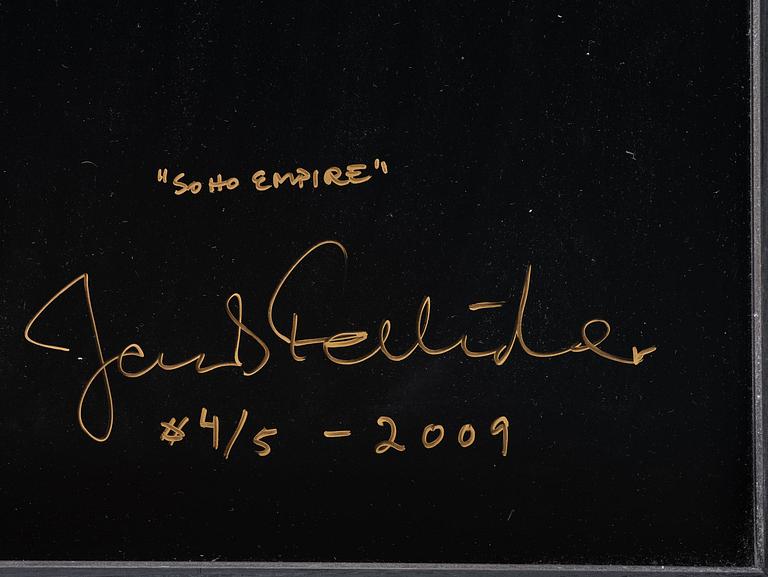 "SOHO EMPIRE"
Jacob Felländer
#4/5 - 2009